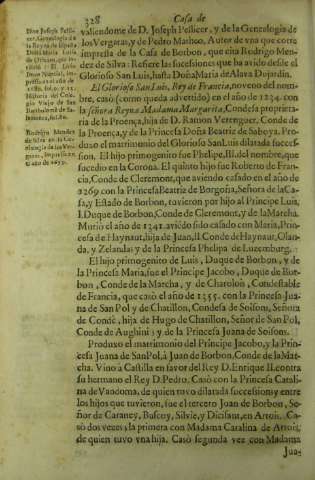 328
Casa de
valiendome de D. Joseph Pellicer, y de la Genealogia de
los Vergaras, y de Pedro Mathoo, Autor de vna que corre
impressa de la Casa de Borbon, que cita Rodrigo Men-
dez de Silva: Refiere las sucesiones que ha avido desde el
Glorioso San Luis, hasta Doña Maria de Alava Dujardin.
El Glorioso San Luis, Rey de Francia, noveno del nom-
bre, casó (como queda advertido) en el año de 1234. con
la señora Reyna Madama Margarita, Condesa proprieta-
ria de la Proença, hija de D. Ramon Verenguer, Conde de
la Proença, y de la Princesa Doña Beatriz de Saboya. Pro-
duxo el matrimonio del Glorioso San Luis dilatada succes-
sion. El hijo primogenito fue Phelipe, III. del nombre, que
sucedio en la Corona. El quinto hijo fue Roberto de Fran-
cia, Conde de Clermont, que aviendo casado en el año de
2269 con la Princesa Beatriz de Borgoña, Señora de la Ca-
sa, y Estado de Borbon, tuvieron por hijo al Principe Luis,
I. Duque de Borbon, Conde de Clermont, y de la Marcha.
Murió el año de 1341. avido sido casado con Maria, Prin-
cesa de Haynaut, hija de Juan, II. Conde de Haynaur, Olan-
da, y Zelanda; y de la Princesa Phelipa de Luxemburg.
El hijo primogenito de Luis, Duque de Borbon, y de
la Princesa Maria, fue el Principe Jacobo, Duque de Bor-
bon, Conde de la Marcha, y de Charolois, Condestable
de Francia, que casó el año de 1355. con la Princesa Jua-
na de San Pol y de Chatillon, Condesa de Soisons, Señora
de Condè, hija de Hugo de Chatillon, Señor de San Pol,
Conde de Aughini; y de la Princesa Juana de Soisons.
Produxo el matrimonio del Principe Jacobo, y la Prin-
cesa Juana de San Pol, à Juan de Borbon, Conde de la Mar-
cha. Vino à Castilla en favor del Rey D. Enrique II. contra
su hermano el Rey D. Pedro. Casó con la Princesa Catali-
na de Vandoma, de quien tuvo dilatada succession; y entre
los hijos que tuvieron, fue el tercero Juan de Borbon, Se-
ñor de Carancy, Buscuy, Silvie, y Dicisant, en Artois. Ca-
só dos veces; la primera con Madama Catalina de Artois,
de quien tuvo vna hija. Casó segunda vez con Madama
Jua-